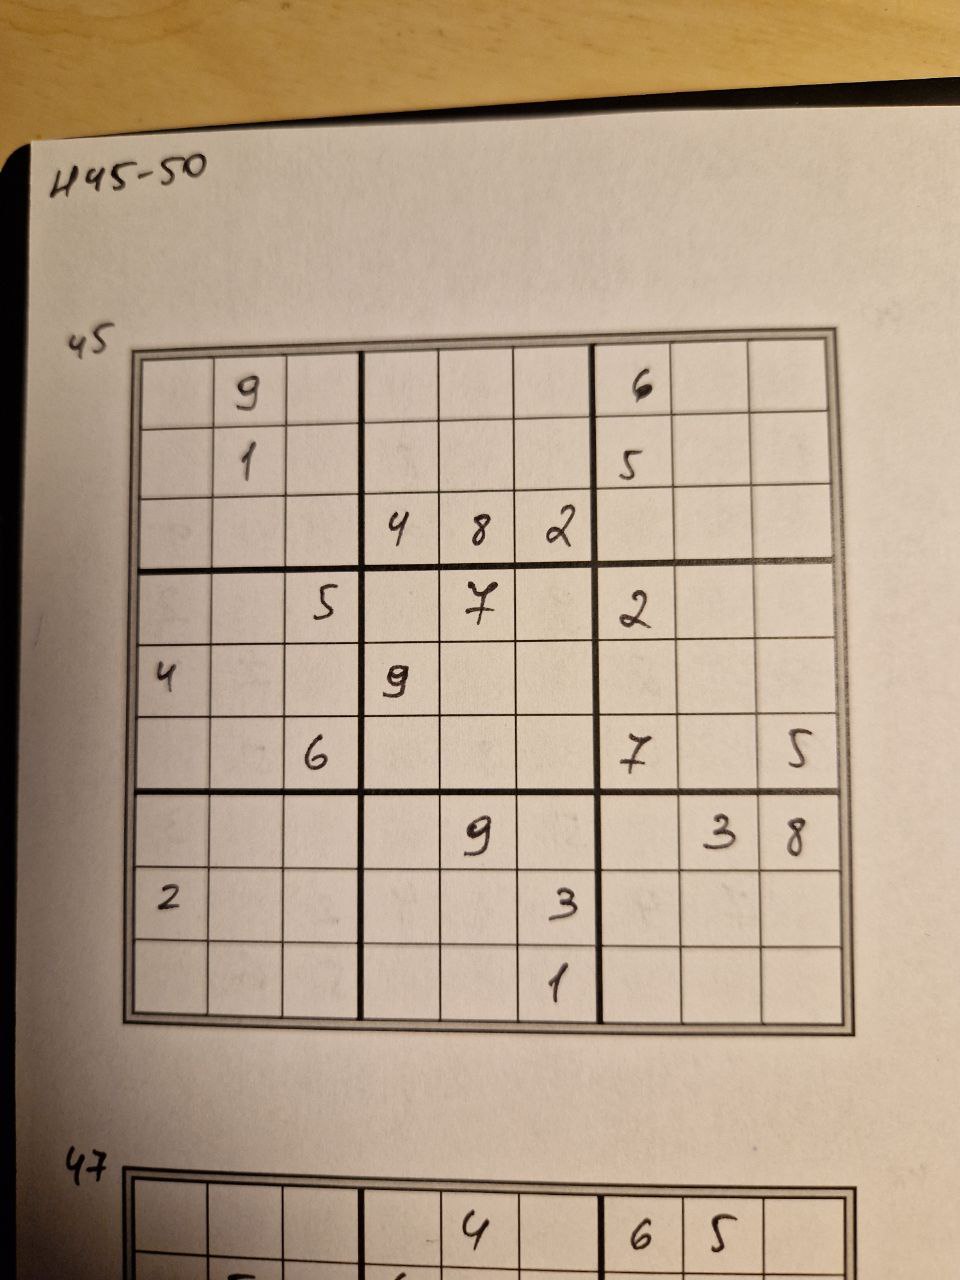 H45-50
45
9 6
1 5
4 8 2
5 7 2
4 9
6 7 5
9 3 8
2 3
1
47
4 6 5